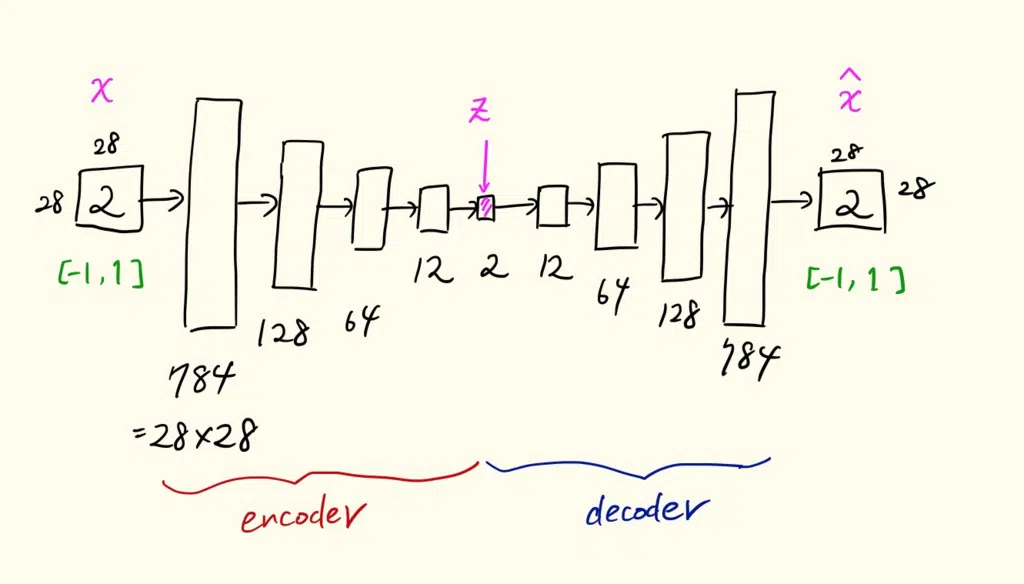 x
28
28
2
[-1, 1]
784
=28×28
128
64
12
z
2
12
64
128
784
x̂
28
28
2
[-1, 1]
encoder
decoder